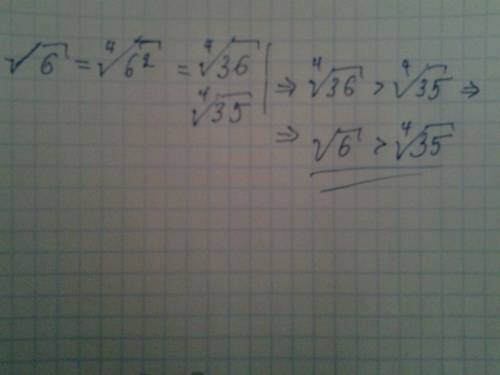 √6 = ⁴√6² = ⁴√36 | ⇒ ⁴√36 > ⁴√35 ⇒
⁴√35 |
⇒ √6 > ⁴√35